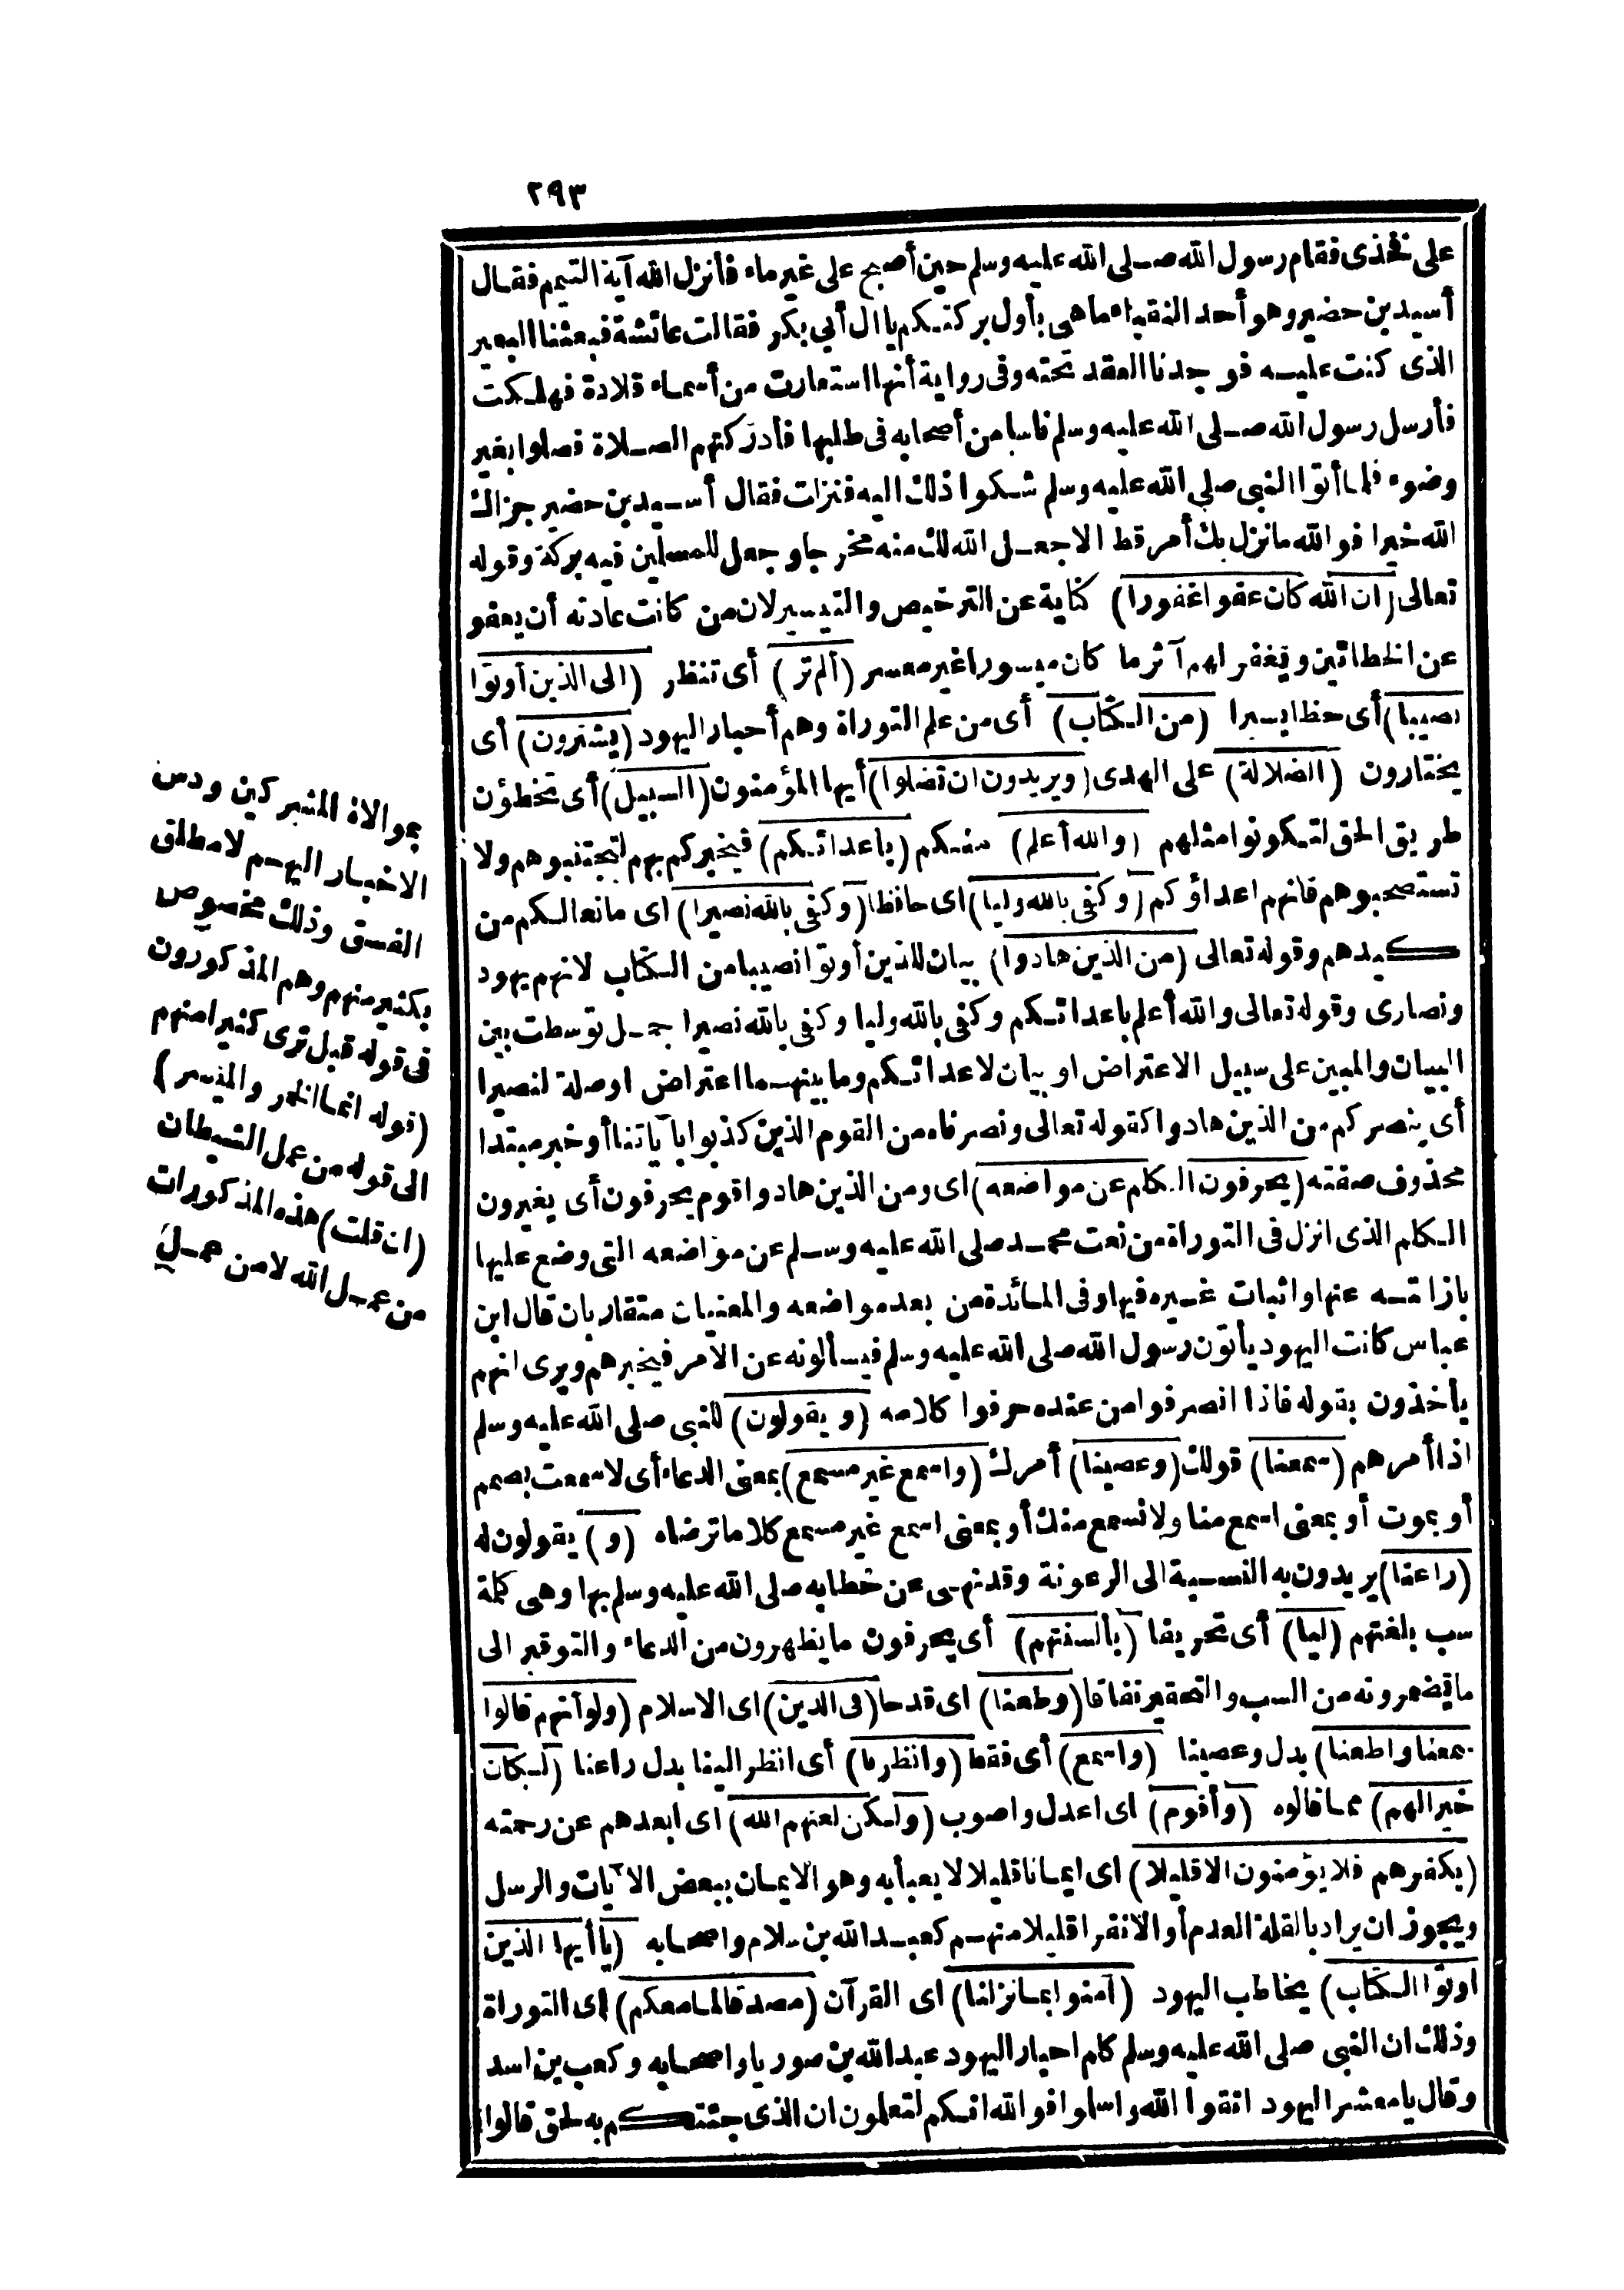 ٢٩٣
على فخذى فقام رسول الله صلى الله عليه وسلم حين أصبح على غير ماء فأنزل الله آية التيمم فقال
أسيد بن حضير وهو أحد النقباء ما هى بأول بركتكم يا ال أبي بكر فقالت عائشة فبعثنا البعير
الذى كنت عليه فوجدنا العقد تحته وفى رواية أنها استعارت من أسماء قلادة فهلكت
فأرسل رسول الله صلى الله عليه وسلم ناسا من أصحابه فى طلبها فأدركتهم الصلاة فصلوا بغير
وضوء فلما أتوا النبي صلى الله عليه وسلم شكوا ذلك اليه فنزلت فقال أسيد بن حضير جزاك
الله خيرا فو الله ما نزل بك أمر قط الا جعل الله لك منه مخرجا وجعل للمسلمين فيه بركة وقوله
تعالى (ان الله كان عفوا غفورا) كناية عن الترخيص والتيسير لان من كانت عادته أن يعفو
عن الخطائين ويغفر لهم آثر ما كان ميسورا غير معسر (ألم تر) أى تنظر (الى الذين أوتوا
نصيبا) أى حظا يسيرا (من الكتاب) أى من علم التوراة وهم أحبار اليهود (يشترون) أى
يختارون (الضلالة) على الهدى (ويريدون ان تضلوا) أيها المؤمنون (السبيل) أى تخطؤن
طريق الحق لتكونوا مثلهم (والله أعلم) منكم (باعدائكم) فيخبركم بهم لتجتنبوهم ولا
تستصحبوهم فانهم اعداؤكم (وكفى بالله وليا) اى حافظا (وكفى بالله نصيرا) اى مانعا لكم من
كيدهم وقوله تعالى (من الذين هادوا) بيان للذين أوتوا نصيبا من الكتاب لانهم يهود
ونصارى وقوله تعالى والله أعلم باعدائكم وكفى بالله وليا وكفى بالله نصيرا جمل توسطت بين
البيان والمبين على سبيل الاعتراض او بيان لاعدائكم وما بينهما اعتراض او صلة لنصيرا
أى ينصركم من الذين هادوا كقوله تعالى ونصرناه من القوم الذين كذبوا بآياتنا أو خبر مبتدا
محذوف صفته (يحرفون الكلم عن مواضعه) اى ومن الذين هادوا قوم يحرفون أى يغيرون
الكلم الذى انزل فى التوراة من نعت محمد صلى الله عليه وسلم عن مواضعه التى وضع عليها
بازالته عنها واثبات غيره فيها وفى المائدة من بعد مواضعه والمعنيان متقاربان قال ابن
عباس كانت اليهود يأتون رسول الله صلى الله عليه وسلم فيسألونه عن الأمر فيخبرهم ويرى انهم
يأخذون بقوله فاذا انصرفوا من عنده حرفوا كلامه (ويقولون) للنبي صلى الله عليه وسلم
اذا أمرهم (سمعنا) قولك (وعصينا) أمرك (واسمع غير مسمع) بمعنى الدعاء أى لا سمعت بصمم
أو بموت أو بمعنى اسمع منا ولا نسمع منك أو بمعنى اسمع غير مسمع كلاما ترضاه (و) يقولون له
(راعنا) يريدون به النسبة الى الرعونة وقد نهى عن خطابه صلى الله عليه وسلم بها وهى كلمة
سب بلغتهم (ليا) أى تحريفا (بألسنتهم) أى يحرفون ما يظهرون من الدعاء والتوقير الى
ما يضمرونه من السب والتحقير نفاقا (وطعنا) اى قدحا (فى الدين) اى الاسلام (ولو أنهم قالوا
سمعنا واطعنا) بدل وعصينا (واسمع) أى فقط (وانظرنا) أى انظر الينا بدل راعنا (لكان
خيرا لهم) مما قالوه (وأقوم) اى اعدل واصوب (ولكن لعنهم الله) اى ابعدهم عن رحمته
(بكفرهم فلا يؤمنون الا قليلا) اى ايمانا قليلا لا يعبأ به وهو الايمان ببعض الآيات والرسل
ويجوز ان يراد بالقلة العدم أو الا نفرا قليلا منهم كعبد الله بن سلام واصحابه (يا أيها الذين
اوتوا الكتاب) يخاطب اليهود (آمنوا بما نزلنا) اى القرآن (مصدقا لما معكم) اى التوراة
وذلك ان النبي صلى الله عليه وسلم كلم احبار اليهود عبد الله بن صوريا واصحابه وكعب بن اسد
وقال يا معشر اليهود اتقوا الله واسلموا فو الله انكم لتعلمون ان الذى جئتكم به لحق قالوا
بموالاة المشركين ودس
الاخبار اليهم لا مطلق
الفسق وذلك مخصوص
بكثير منهم وهم المذكورون
فى قوله قبل ترى كثيرا منهم
(قوله انما الخمر والميسر)
الى قوله من عمل الشيطان
(ان قلت) هذه المذكورات
من عمل الله لا من عمل